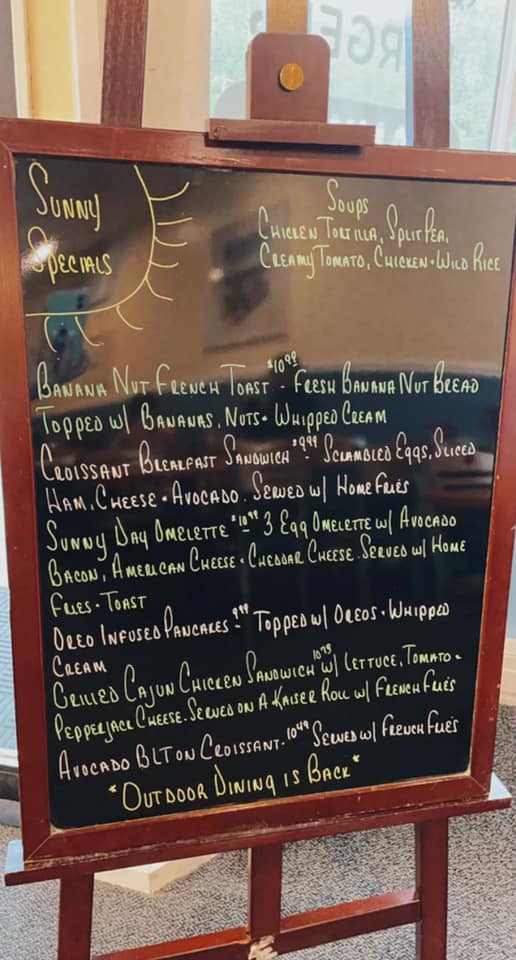 RGE
Sunny
Specials
Soups
Chicken Tortilla, Split Pea,
Creamy Tomato, Chicken • Wild Rice
Banana Nut French Toast $10.99 - Fresh Banana Nut Bread
Topped w/ Bananas, Nuts • Whipped Cream
Croissant Breakfast Sandwich $9.99 - Scrambled Eggs, Sliced
Ham, Cheese • Avocado. Served w/ Home Fries
Sunny Day Omelette $10.99 - 3 Egg Omelette w/ Avocado
Bacon, American Cheese • Cheddar Cheese. Served w/ Home
Fries • Toast
Oreo Infused Pancakes 9.99 - Topped w/ Oreos • Whipped
Cream
Grilled Cajun Chicken Sandwich w/ Lettuce, Tomato •
Pepperjack Cheese. Served on A Kaiser Roll w/ French Fries
Avocado BLT on Croissant. 10.49 Served w/ French Fries
*Outdoor Dining is Back*